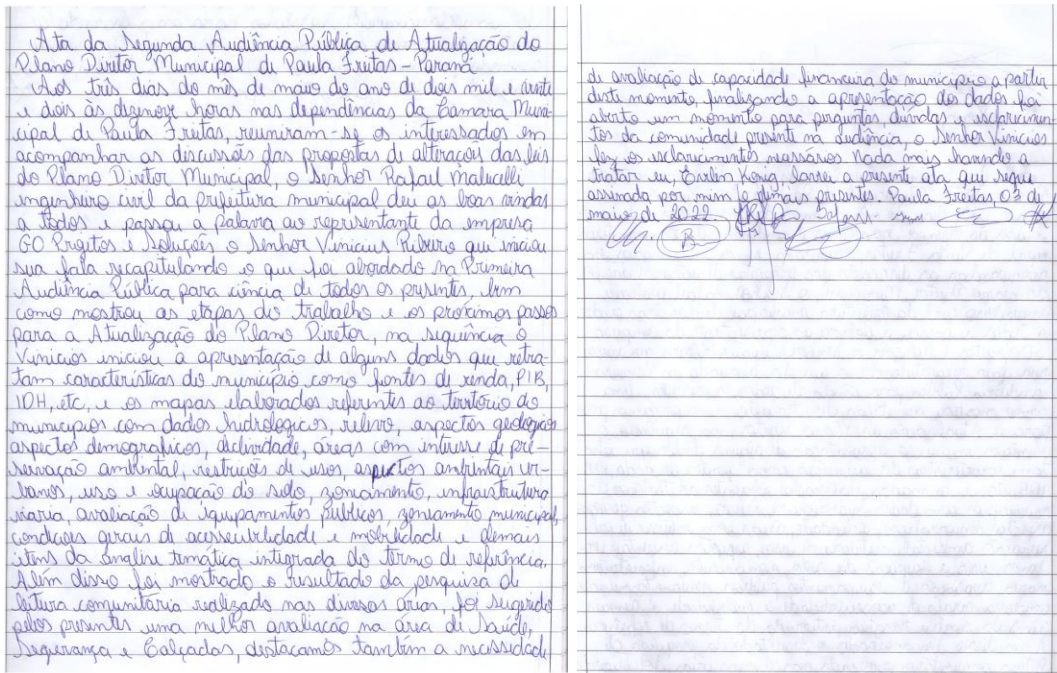 Ata da Segunda Audiência Pública de Atualização do
Plano Diretor Municipal de Paula Freitas - Paraná
Aos três dias do mês de maio do ano de dois mil e vinte
e dois às dezenove horas nas dependências da Camara Muni-
cipal de Paula Freitas, reuniram-se os interessados em
acompanhar as discussões das propostas de alterações das leis
do Plano Diretor Municipal, o Senhor Rafael Malucelli
engenheiro civil da prefeitura municipal deu as boas vindas
a todos e passou a palavra ao representante da empresa
GO Projetos e Soluções o Senhor Vinicius Ribeiro que iniciou
sua fala recapitulando o que foi abordado na Primeira
Audiência Pública para ciência de todos os presentes, bem
como mostrou as etapas do trabalho e os próximos passos
para a Atualização do Plano Diretor, na sequência o
Vinicios iniciou a apresentação de alguns dados que retra-
tam características do município como fontes de renda, PIB,
IDH, etc, e os mapas elaborados referentes ao território do
municipios com dados hidrológicos, relevo, aspectos geológicos
aspectos demograficos, declividade, áreas com intresse de pre-
servação ambiental, restrições de usos, aspectos ambientais ur-
banos, uso e ocupação do solo, zoneamento, infraestrutura
viaria, avaliação de equipamentos públicos, zoneamento municipal,
condições gerais de acessibilidade e mobilidade e demais
itens da analise temática integrada do termo de referência.
Além disso foi mostrado o resultado da pesquisa de
leitura comunitária realizado nas diversas áreas, foi sugerido
pelos presentes uma melhor avaliação na área de Saúde,
Segurança e Calçadas, destacamos também a necessidade
de avaliação de capacidade financeira do municipio a partir
deste momento, finalizando a apresentação dos dados foi
aberto um momento para perguntas, duvidas e esclarecimen-
tos da comunidade presente na audiência, o Senhor Vinicios
fez os esclarecimentos necessários Nada mais havendo a
tratar eu, Evelin Konig, lavrei a presente ata que segue
assinada por mim e demais presentes. Paula Freitas, 03 de
maio de 2022